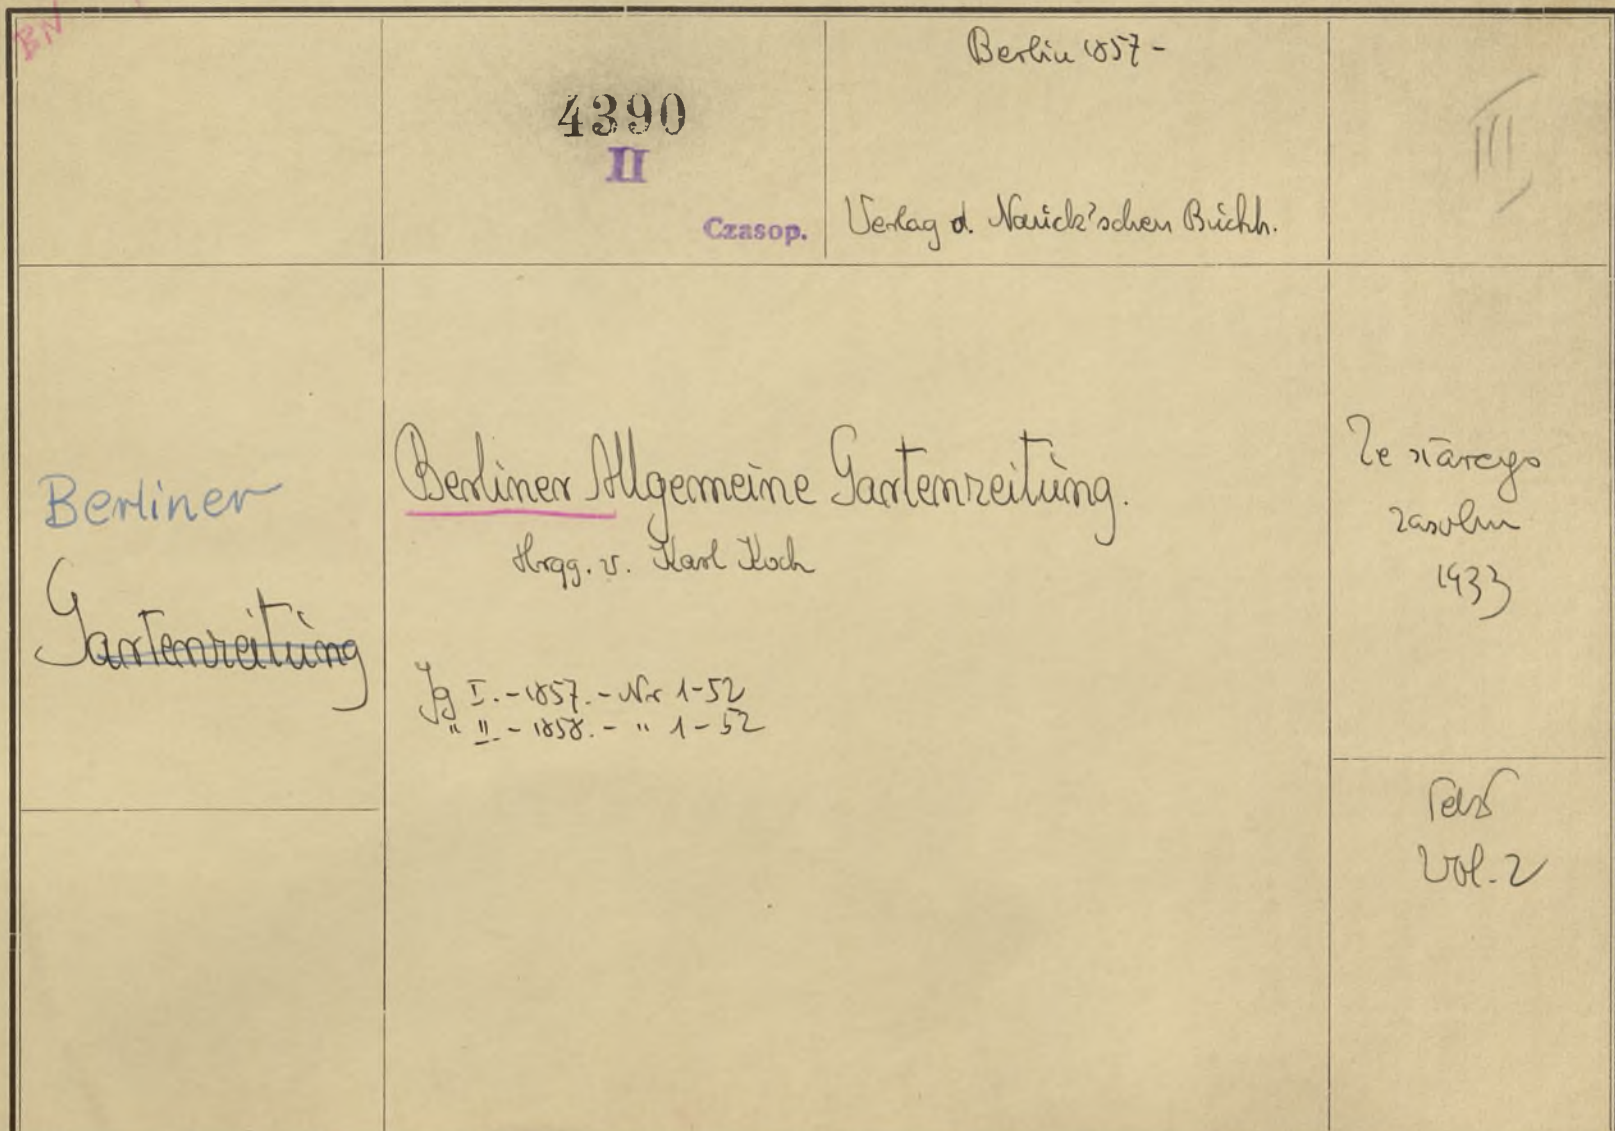 BN
4390
II
Czasop.
Berlin 1857-
Verlag d. Nauck'schen Buchh.
III
Berliner
Gartenzeitung
Berliner Allgemeine Gartenzeitung.
Hrgg. v. Karl Koch
Jg I. - 1857. - Nr 1-52
" II. - 1858. - " 1-52
Ze starego
zasobu
1933
Vol. 2